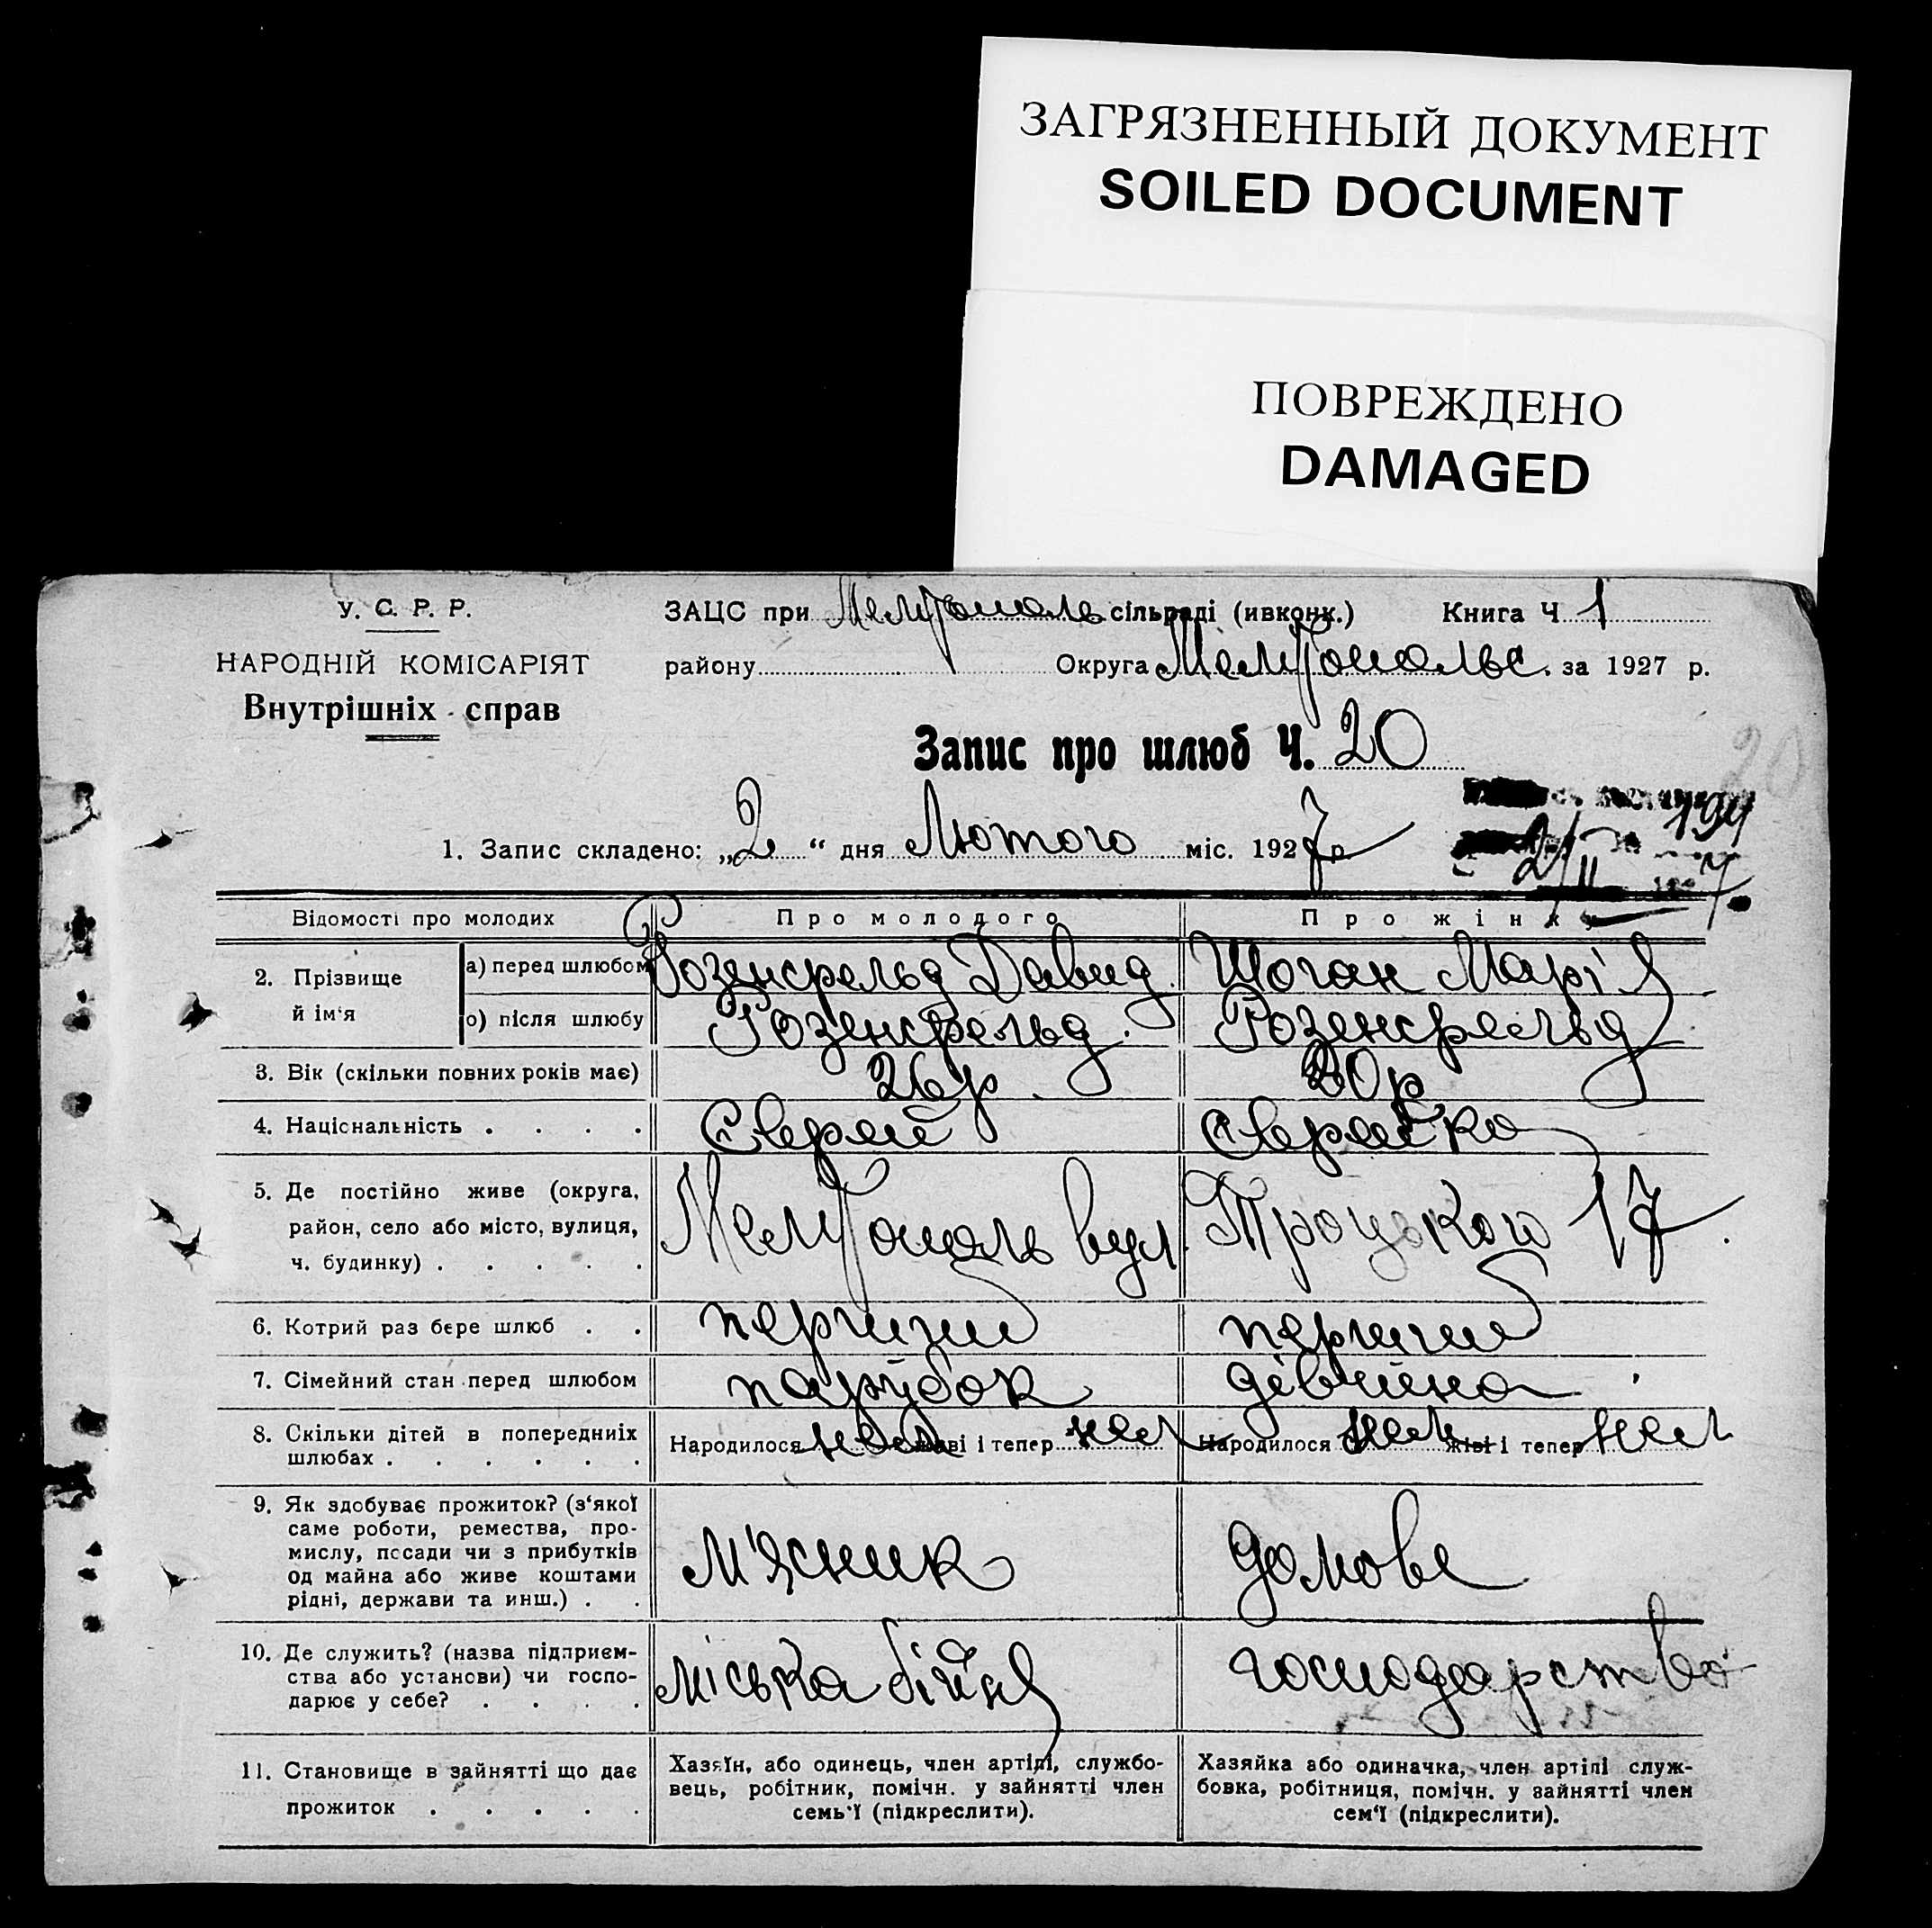 ЗАГРЯЗНЕННЫЙ ДОКУМЕНТ
SOILED DOCUMENT
ПОВРЕЖДЕНО
DAMAGED
У. С. Р. Р.
НАРОДНІЙ КОМІСАРІЯТ
Внутрішніх справ
ЗАЦС при Мелітополь сільраді (ивконк.) Книга Ч 1
району Округа Мелітопольс. за 1927 р.
Запис про шлюб Ч. 20
20
194
2/II 7
1. Запис складено: „2“ дня Лютого міс. 1927 р.
Відомості про молодих Про молодого Про жінку
2. Прізвище й ім‘я
а) перед шлюбом Розенфельд Давид. Шоган Марія
о) після шлюбу Розенфельд. Розенфельд
3. Вік (скільки повних років має) 26 р. 20 р.
4. Національність . . . . Єврей Єврейка
5. Де постійно живе (округа,
район, село або місто, вулиця,
ч. будинку) . . . . . Мелітополь вул. Троцького 17.
6. Котрий раз бере шлюб . . перший перший
7. Сімейний стан перед шлюбом парубок дівчина
8. Скільки дітей в попередніх
шлюбах . . . . . . Народилося нема живі і тепер нема Народилося нема живі і тепер нема
9. Як здобуває прожиток? (з‘якої
саме роботи, ремества, про-
мислу, посади чи з прибутків
од майна або живе коштами
рідні, держави та инш.) . . м'ясник домове
10. Де служить? (назва підприєм-
ства або установи) чи госпо-
дарює у себе? . . . . міська бійня господарство
11. Становище в зайнятті що дає
прожиток . . . . .
Хазяїн, або одинець, член артілі, службо-
вець, робітник, помічн. у зайнятті член
семь‘ї (підкреслити).
Хазяйка або одиначка, член артілі служ-
бовка, робітниця, помічн. у зайнятті член
сем‘ї (підкреслити).